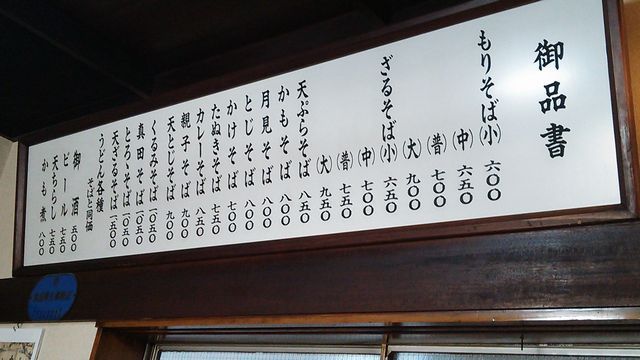 御品書
もりそば(小) 六〇〇
(中) 六五〇
(普) 七〇〇
(大) 九〇〇
ざるそば(小) 六五〇
(中) 七〇〇
(普) 七五〇
(大) 九五〇
天ぷらそば 八五〇
かもそば 八〇〇
月見そば 八〇〇
とじそば 八〇〇
かけそば 七〇〇
たぬきそば 七五〇
カレーそば 八五〇
親子そば 九〇〇
天とじそば 九〇〇
くるみそば 一〇五〇
真田そば 一〇五〇
とろろそば 一〇五〇
天ざるそば 一一五〇
うどん各種 そばと同価
御酒 五〇〇
ビール 七五〇
天ちらし 七五〇
かも煮 八〇〇